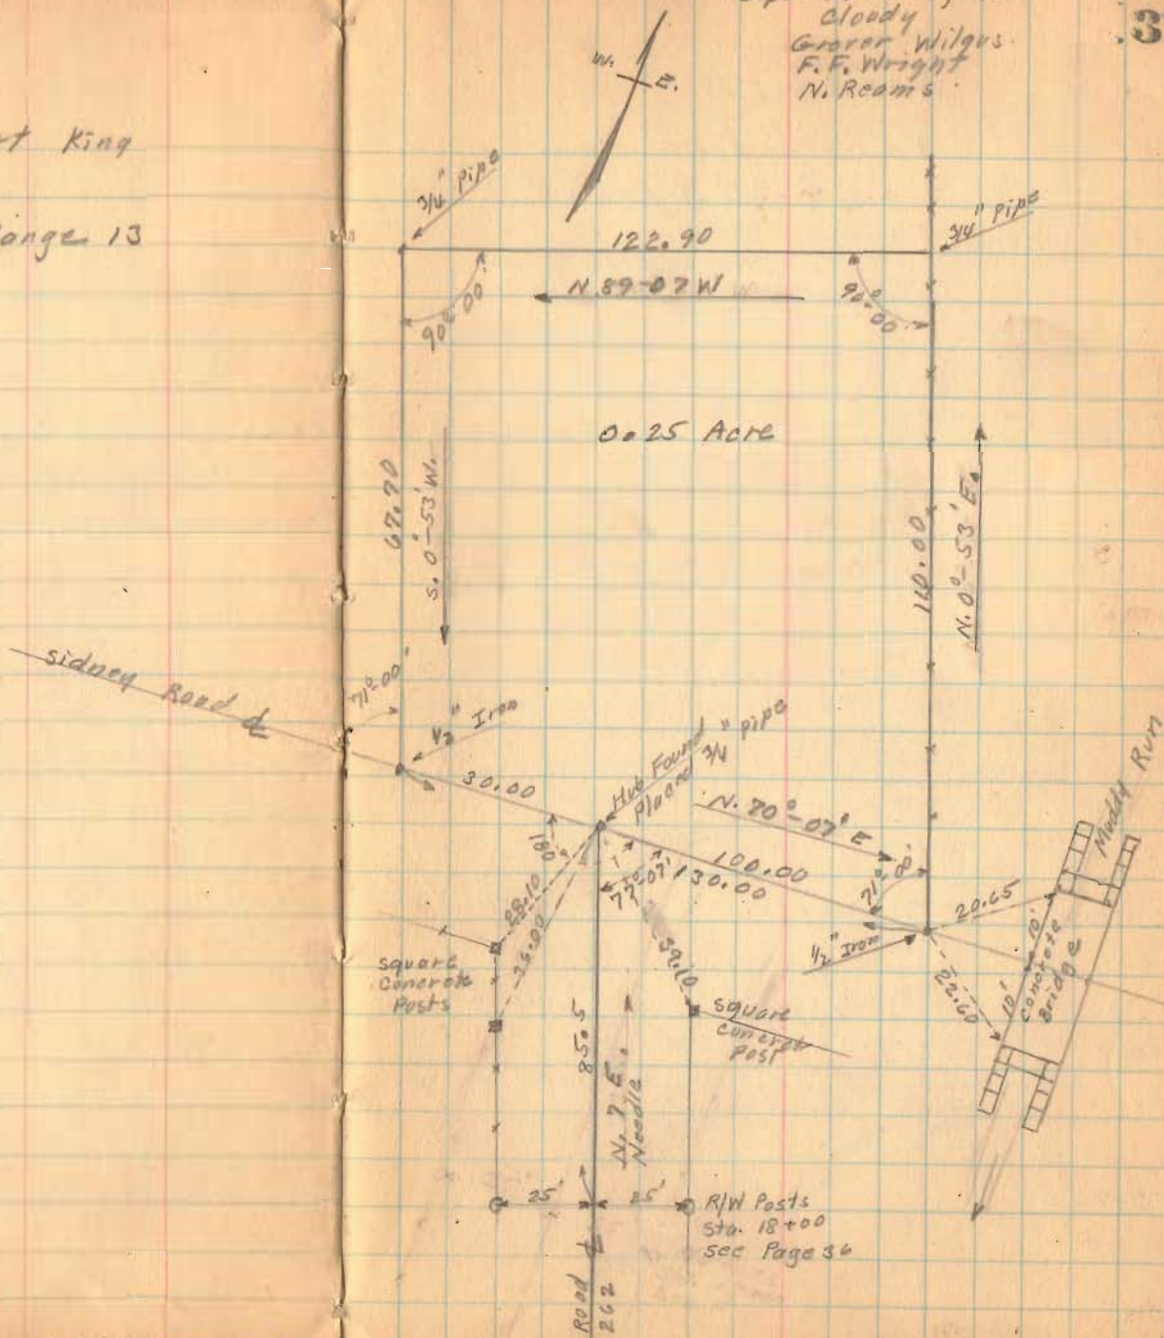 Cloudy
Grover Wilgus
F. F. Wright
N. Reams
3
W.
E.
King
Range 13
3/4" Pipe
3/4" Pipe
122.90
N. 89-07 W
90°-00'
90°-00'
0.25 Acre
67.70
S. 0°-53' W.
110.00
N. 0°-53' E.
Sidney Road ℄
71°-00'
1/2" Iron
30.00
Hub Found
Placed 3/4" pipe
N. 70°-07' E
100.00
130.00
77°-07'
180°
71°-00'
1/2" Iron
20.65
22.60
10'
10'
Concrete
Bridge
Muddy Run
28.10
36.00
39.10
Square
Concrete
Posts
Square
Concrete
Post
85.5
N. 7 E.
Needle
25'
25'
R/W Posts
Sta. 18+00
See Page 36
Road ℄
262